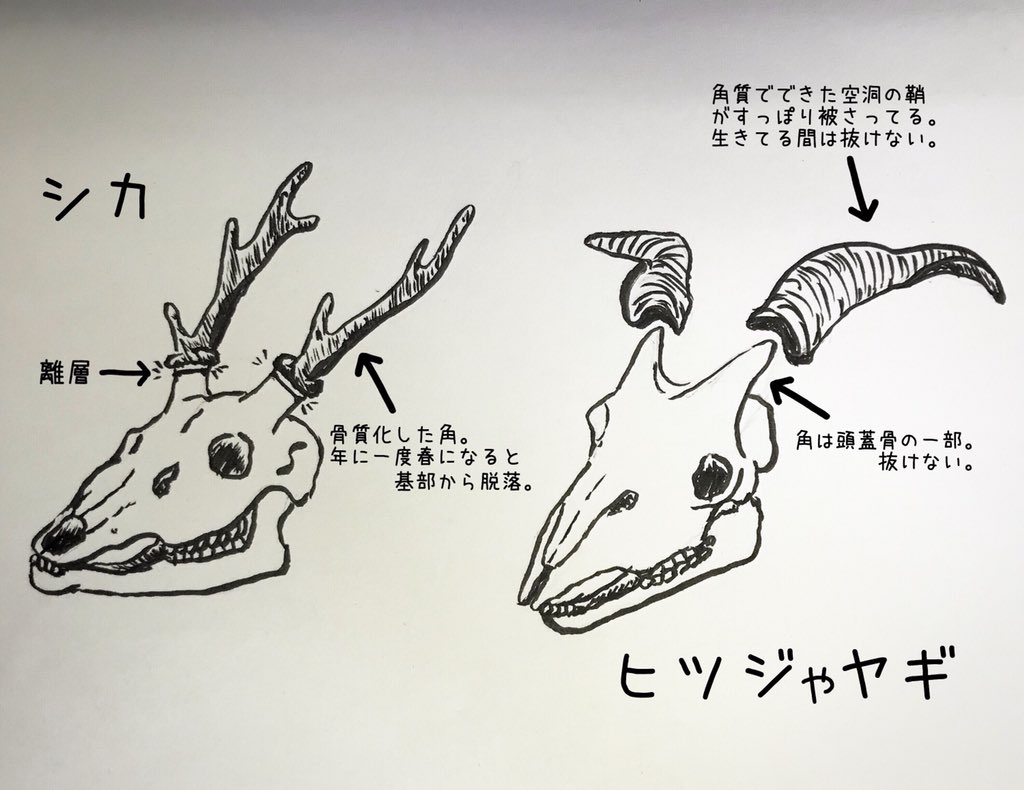 シカ
離層
骨質化した角。
年に一度春になると
基部から脱落。
角質でできた空洞の鞘
がすっぽり被さってる。
生きてる間は抜けない。
角は頭蓋骨の一部。
抜けない。
ヒツジやヤギ